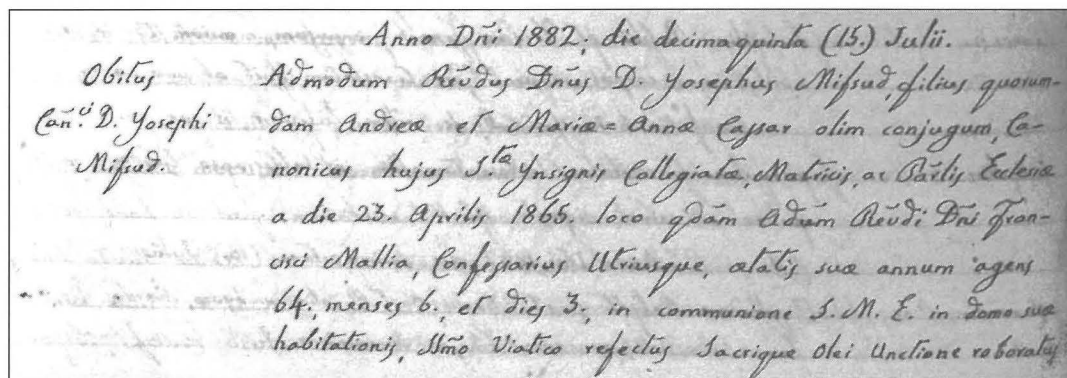 Anno Dñi 1882; die decimaquinta (15.) Julii.
Obitus Admodum Reũdus Dñus D. Yosephus Mifsud, filius quorum-
Canci. D. Yosephi dam Andreæ et Mariæ=Annæ Cassar olim conjugum, Ca-
Mifsud. nonicus hujus S.tæ Ynsignis Collegiatæ, Matricis, ac Parlis Ecclesiæ
a die 23. Aprilis 1865. loco qdam Adũm Reũdi Dñi Fran-
cisci Mallia, Confessarius Utriusque, ætatis suæ annum agens
64., menses 6., et dies 3., in communione S. M. E. in domo suæ
habitationis, SSmo Viatico refectus Sacrique Olei Unctione roboratus